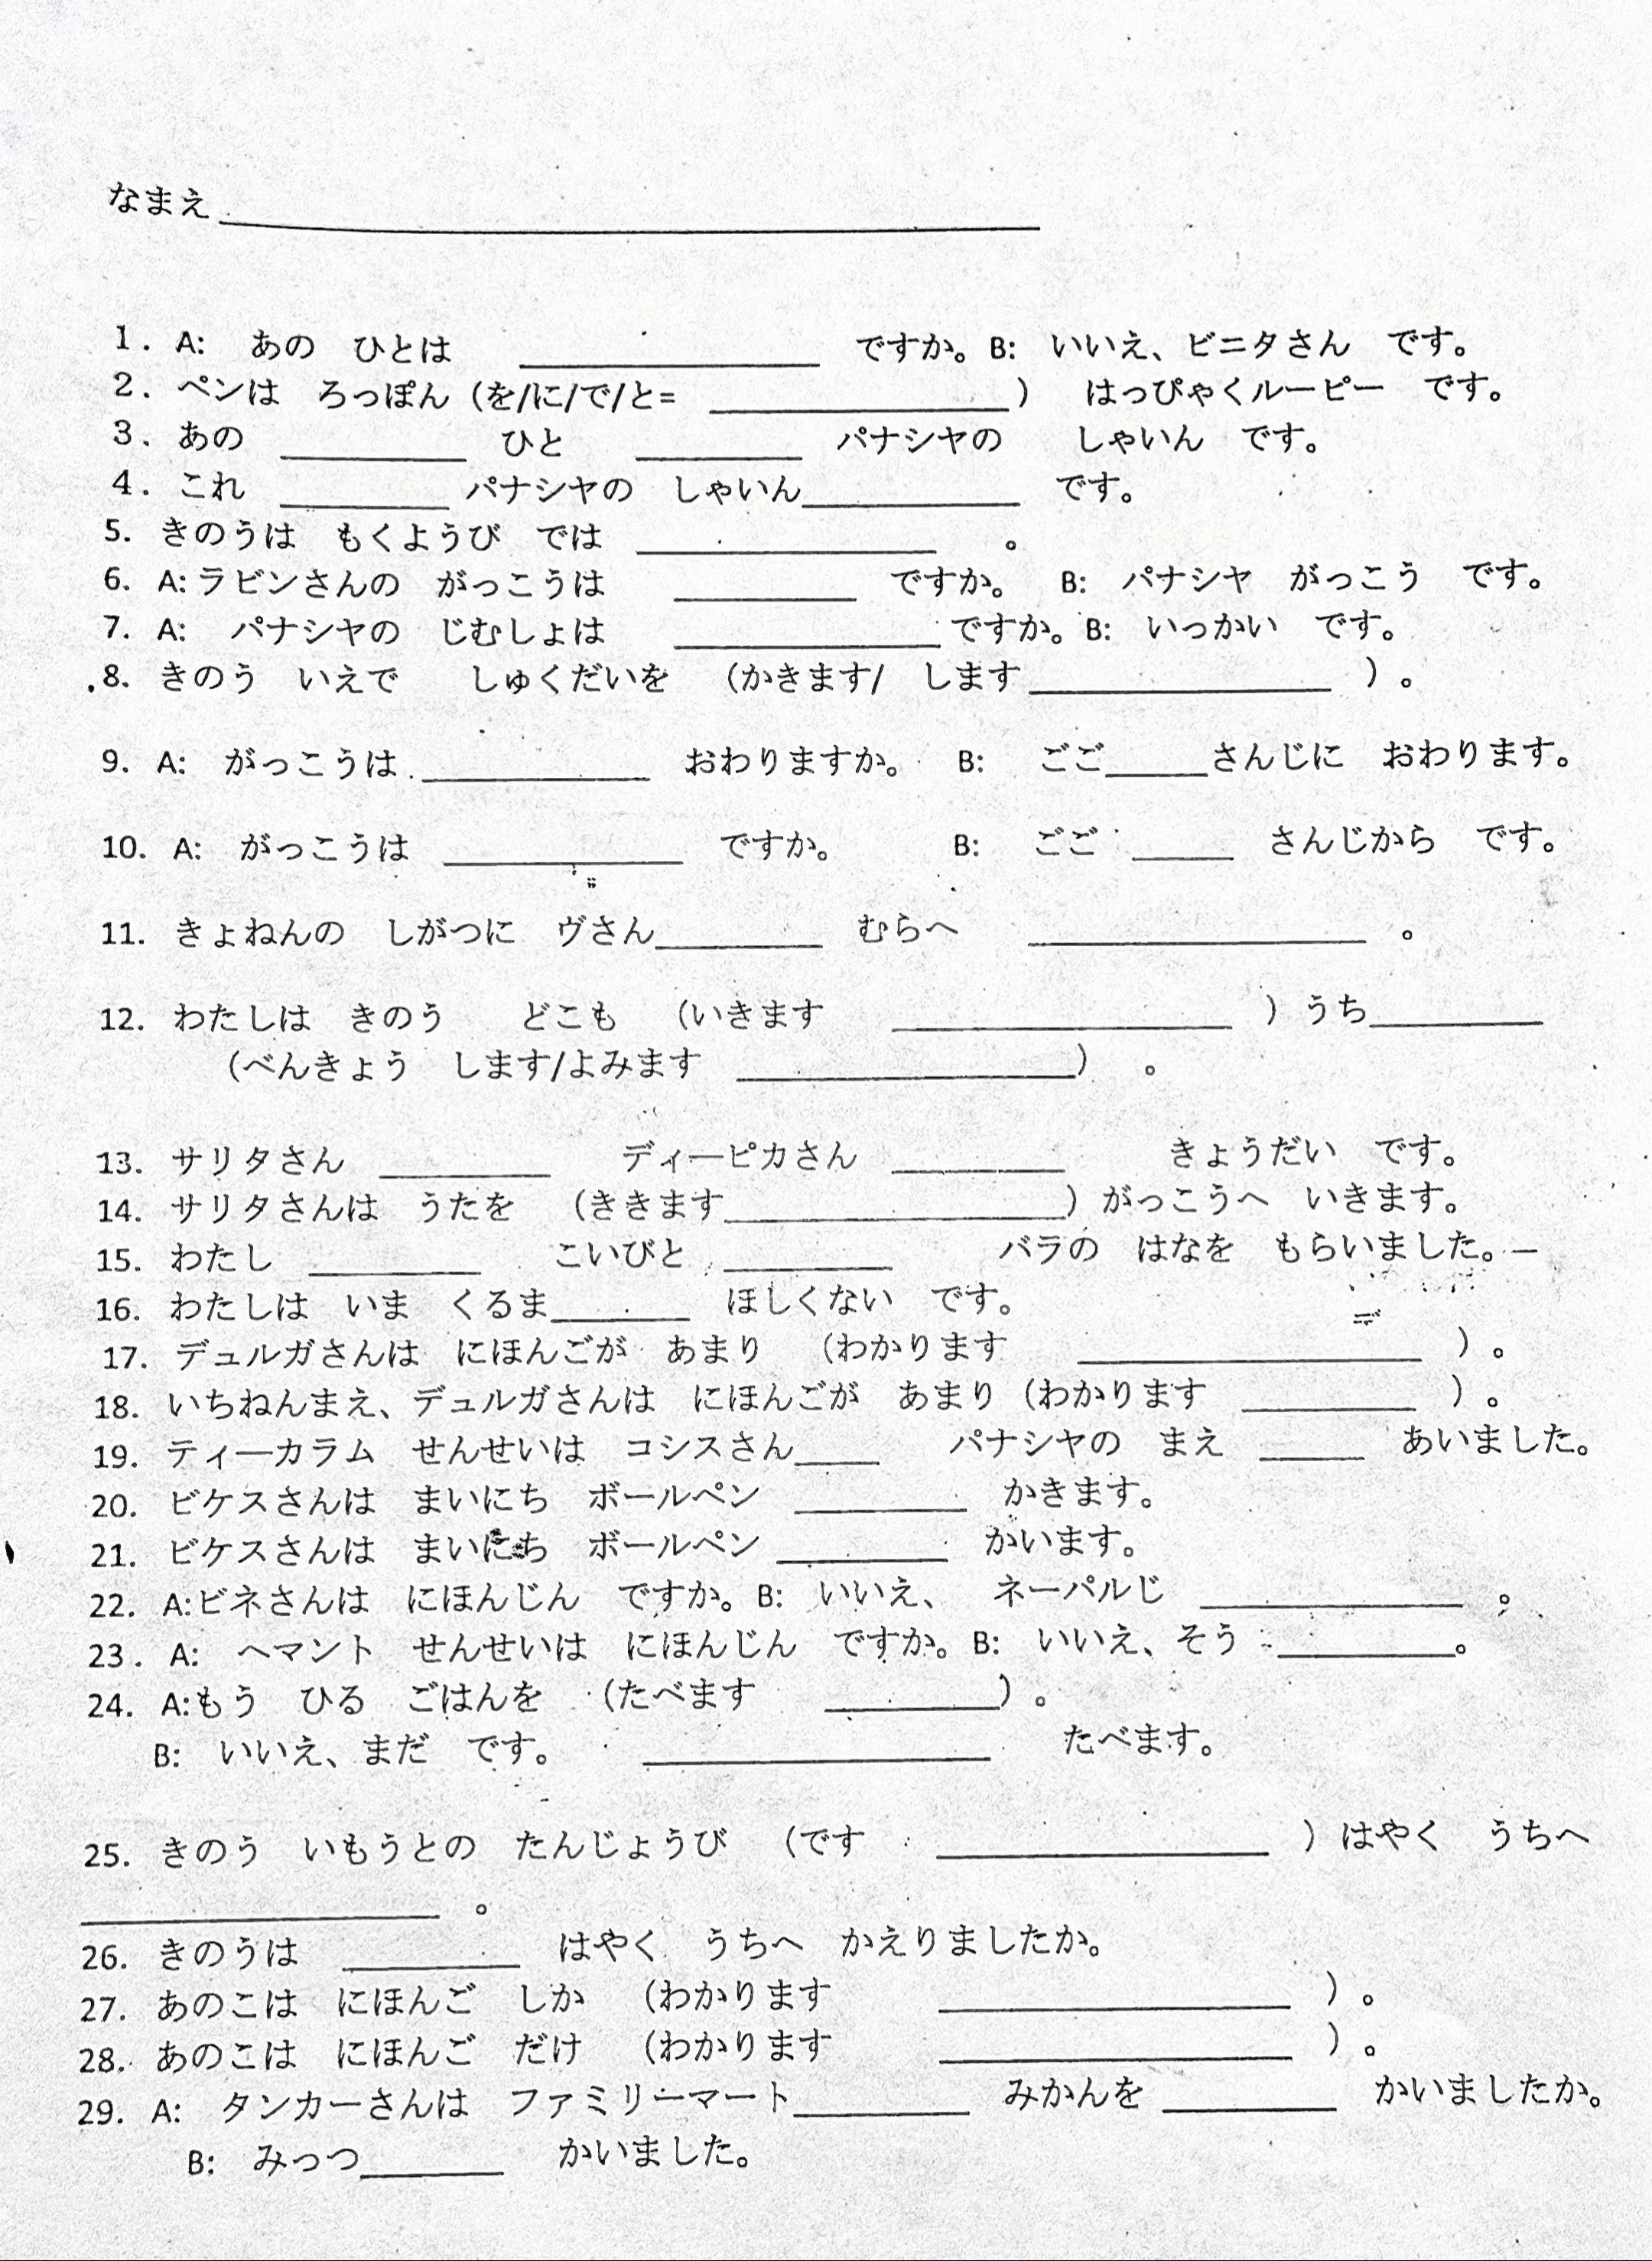 なまえ＿＿＿＿＿＿＿＿＿＿
1. A: あの ひとは ＿＿＿＿＿ ですか。B: いいえ、ビニタさん です。
2. ペンは ろっぽん（を/に/で/と= ＿＿＿＿＿） はっぴゃくルーピー です。
3. あの ＿＿＿ ひと ＿＿＿ パナシヤの しゃいん です。
4. これ ＿＿＿ パナシヤの しゃいん＿＿＿ です。
5. きのうは もくようび では ＿＿＿＿＿ 。
6. A: ラビンさんの がっこうは ＿＿＿ ですか。 B: パナシヤ がっこう です。
7. A: パナシヤの じむしょは ＿＿＿＿ ですか。B: いっかい です。
8. きのう いえで しゅくだいを （かきます/ します＿＿＿＿＿ ）。
9. A: がっこうは ＿＿＿＿ おわりますか。 B: ごご＿＿さんじに おわります。
10. A: がっこうは ＿＿＿＿ ですか。 B: ごご ＿＿ さんじから です。
11. きょねんの しがつに ヴさん＿＿＿ むらへ ＿＿＿＿＿ 。
12. わたしは きのう どこも （いきます ＿＿＿＿＿ ）うち＿＿＿
（べんきょう します/よみます ＿＿＿＿＿） 。
13. サリタさん ＿＿＿ ディーピカさん ＿＿＿ きょうだい です。
14. サリタさんは うたを （ききます＿＿＿＿＿）がっこうへ いきます。
15. わたし ＿＿＿ こいびと ＿＿＿ バラの はなを もらいました。
16. わたしは いま くるま＿＿＿ ほしくない です。
17. デュルガさんは にほんごが あまり （わかります ＿＿＿＿＿ ）。
18. いちねんまえ、デュルガさんは にほんごが あまり（わかります ＿＿＿ ）。
19. ティーカラム せんせいは コシスさん＿＿ パナシヤの まえ ＿＿ あいました。
20. ビケスさんは まいにち ボールペン ＿＿＿ かきます。
21. ビケスさんは まいにち ボールペン ＿＿＿ かいます。
22. A:ビネさんは にほんじん ですか。B: いいえ、 ネーパルじ ＿＿＿＿ 。
23. A: ヘマント せんせいは にほんじん ですか。B: いいえ、そう ＿＿＿。
24. A:もう ひる ごはんを （たべます ＿＿＿）。
B: いいえ、まだ です。 ＿＿＿＿＿ たべます。
25. きのう いもうとの たんじょうび （です ＿＿＿＿＿ ）はやく うちへ
＿＿＿＿＿ 。
26. きのうは ＿＿＿ はやく うちへ かえりましたか。
27. あのこは にほんご しか （わかります ＿＿＿＿＿ ）。
28. あのこは にほんご だけ （わかります ＿＿＿＿＿ ）。
29. A: タンカーさんは ファミリーマート＿＿＿ みかんを ＿＿＿ かいましたか。
B: みっつ＿＿＿ かいました。